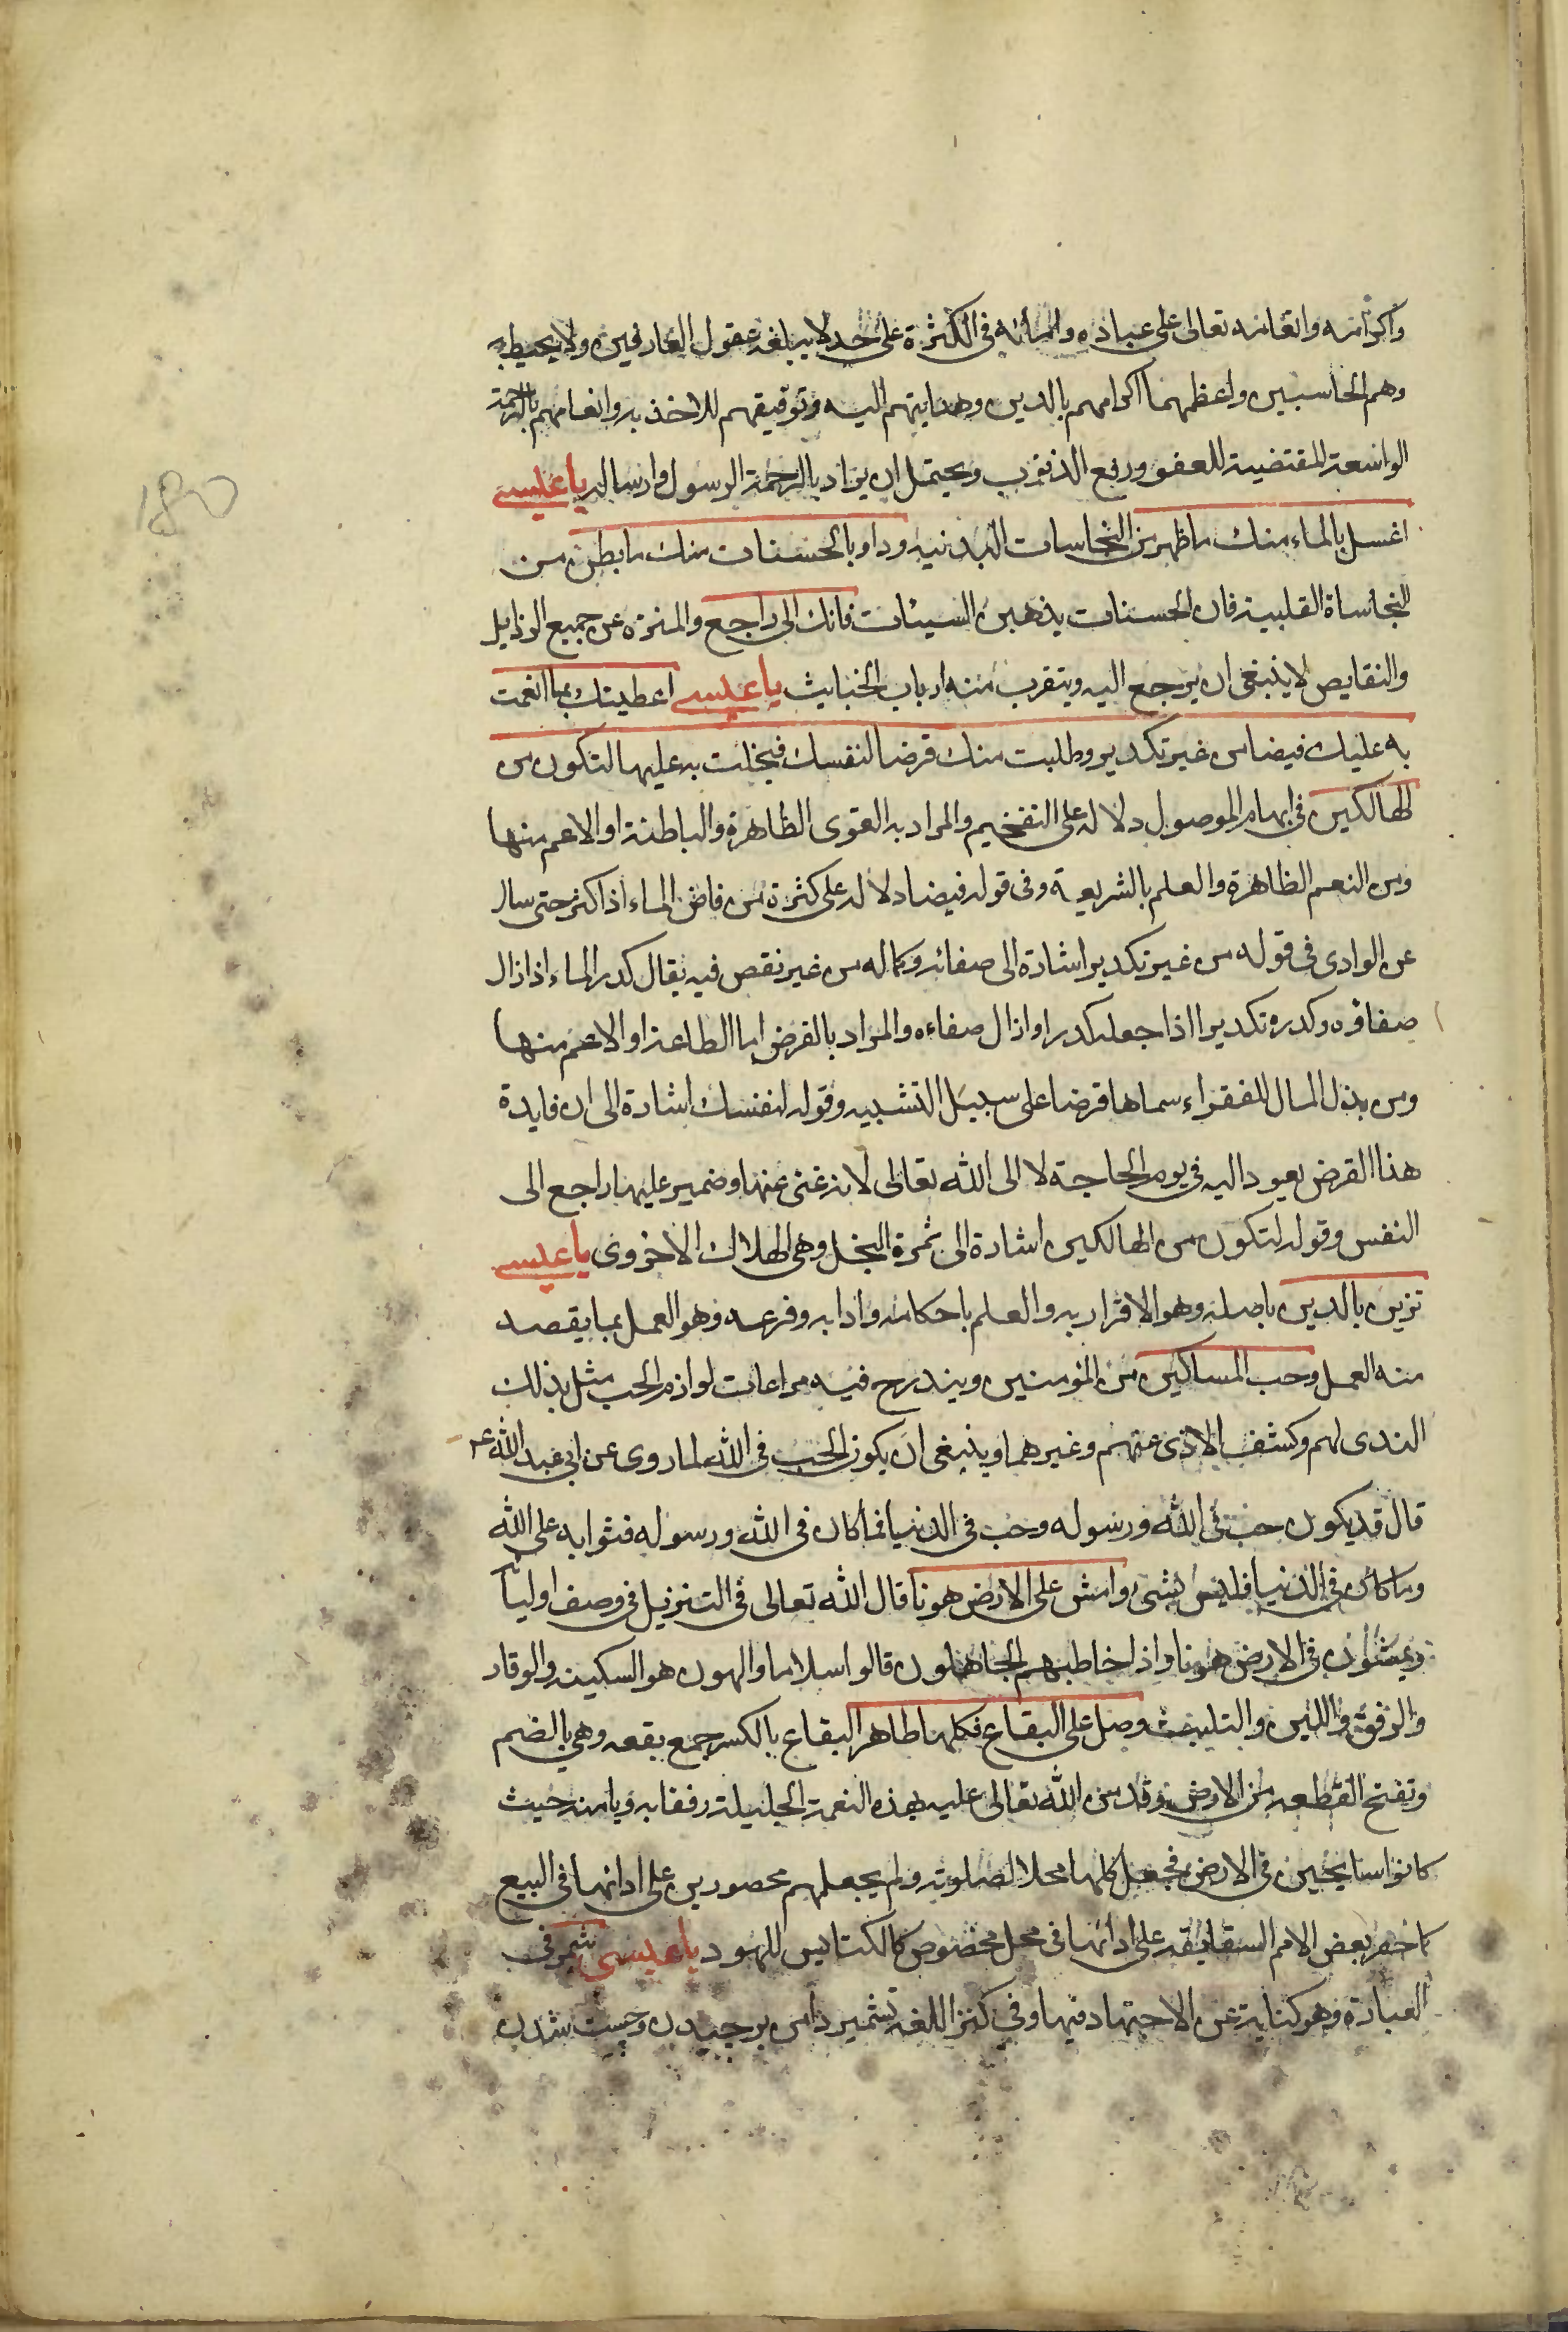 واكرامه وانعامه تعالى على عباده واحسانه في الكثرة على حد لا يبلغه عقول العارفين ولا يحيط به
وهم الحاسبين واعظمهما اكرامهم بالدين وهدايتهم اليه وتوفيقهم للاخذ به وانعامهم بالرحمة
الواسعة المقتضية للعفو ورفع الذنوب ويحتمل ان يراد بالرحمة الرسول وارساله يا عيسى
اغسل بالماء منك ما ظهر من النجاسات البدنيه وداو بالحسنات منك ما بطن من
النجاساة القلبية فان الحسنات يذهبن السيئات فانك الى راجع والمنزه عن جميع الرذايل
والنقايص لا ينبغي ان يرجع اليه ويتقرب منه ارباب الخبايث يا عيسى اعطيتك بما انعمت
به عليك فيضا من غير تكدير وطلبت منك قرضا لنفسك فبخلت به عليها لتكون من
الهالكين في ابهام الموصول دلاله على التفخيم والمراد به القوى الظاهرة والباطنة او الاعم منها
ومن النعم الظاهرة والعلم بالشريعة وفى قوله فيضا دلاله على كثرة من فاض الماء اذا كثر حتى سال
عن الوادى في قوله من غير تكدير اشارة الى صفائه وكماله من غير نقص فيه يقال كدر الماء اذا زال
صفاؤه وكدره تكديرا اذا جعله كدرا وازال صفاءه والمراد بالقرض اما الطاعة او الاعم منها
ومن بذل المال للفقراء سماها قرضا على سبيل التشبيه وقوله لنفسك اشارة الى ان فايدة
هذا القرض يعود اليه في يوم الحاجة لا الى الله تعالى لانه غنى عنها وضمير عليها راجع الى
النفس وقوله لتكون من الهالكين اشارة الى ثمرة البخل وهى الهلاك الاخروى يا عيسى
تزين بالدين باصله وهو الاقرار به والعلم باحكامه وادابه وفرعه وهو العمل بما يقصد
منه العمل وحب المساكين من المؤمنين ويندرج فيه مراعات لوازم الحب مثل بذل
الندى لهم وكشف الاذى عنهم وغيرهما وينبغى ان يكون الحب في الله لما روى عن ابي عبد الله ع
قال قد يكون حب في الله ورسوله وحب في الدنيا فما كان في الله ورسوله فثوابه على الله
وما كان في الدنيا فليس بشئ وامش على الارض هونا قال الله تعالى في التنزيل في وصف اوليائه
ويمشون في الارض هونا واذا خاطبهم الجاهلون قالوا سلاما والهون هو السكينه والوقار
والرفق واللين والتلبث وصل على البقاع فكلها طاهر البقاع بالكسر جمع بقعه وهى بالضم
وتفتح القطعه من الارض وقد من الله تعالى عليه بهذه النعمة الجليلة رفقا به ويامنه حيث
كانوا سايحين في الارض فجعل كلها محلا لصلوته ولم يجعلهم محصورين على ادائها في البيع
كما حصر بعض الامم السقابقه على ادائها في محل مخصوص كالكنايس لليهود يا عيسى شمر في
العبادة وهو كناية عن الاجتهاد فيها وفى كنز اللغه تشمير دامن برچيدن وچست شدن
180